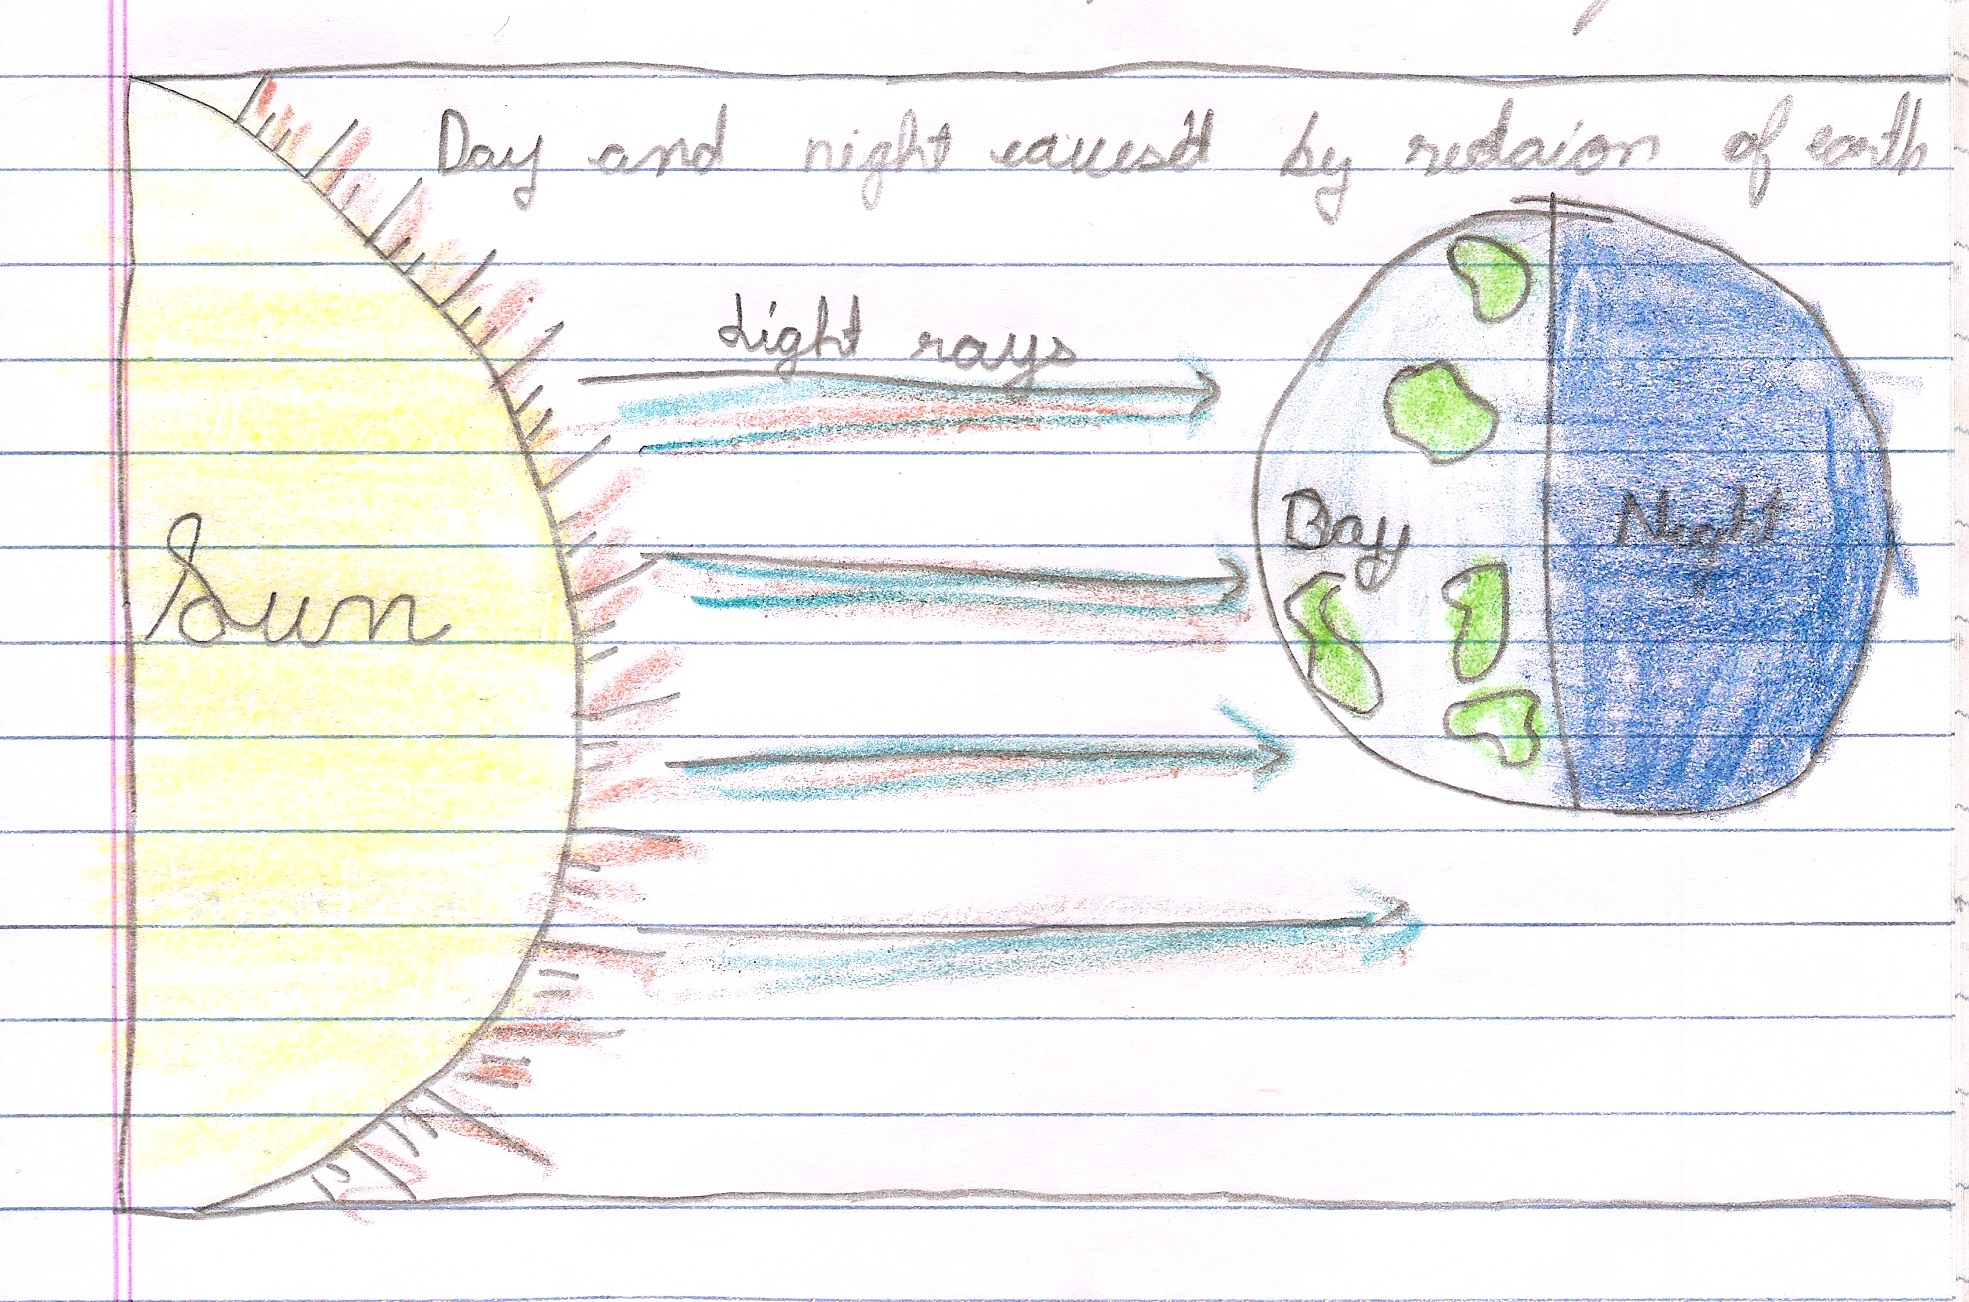 Day and night caused by redaion of earth
Light rays
Day
Night
Sun